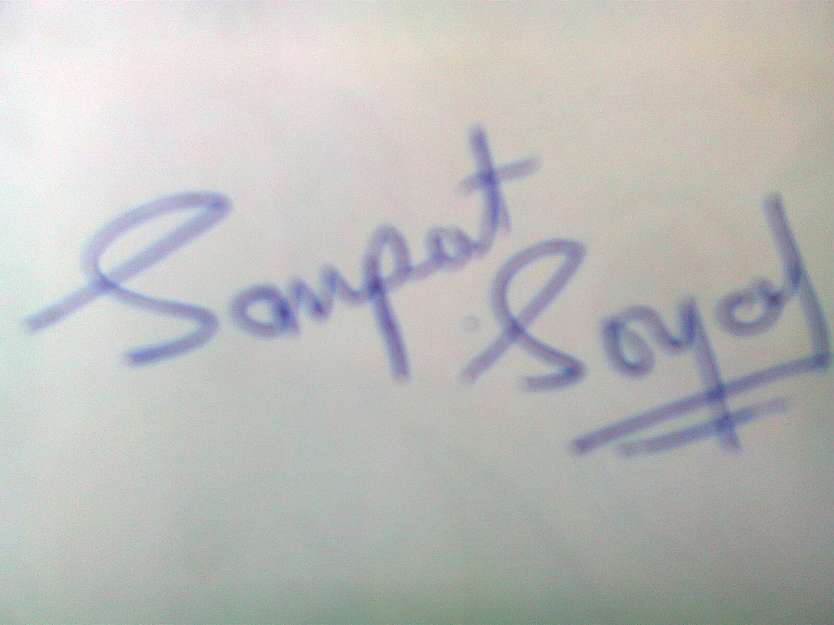 Sampat Soyal